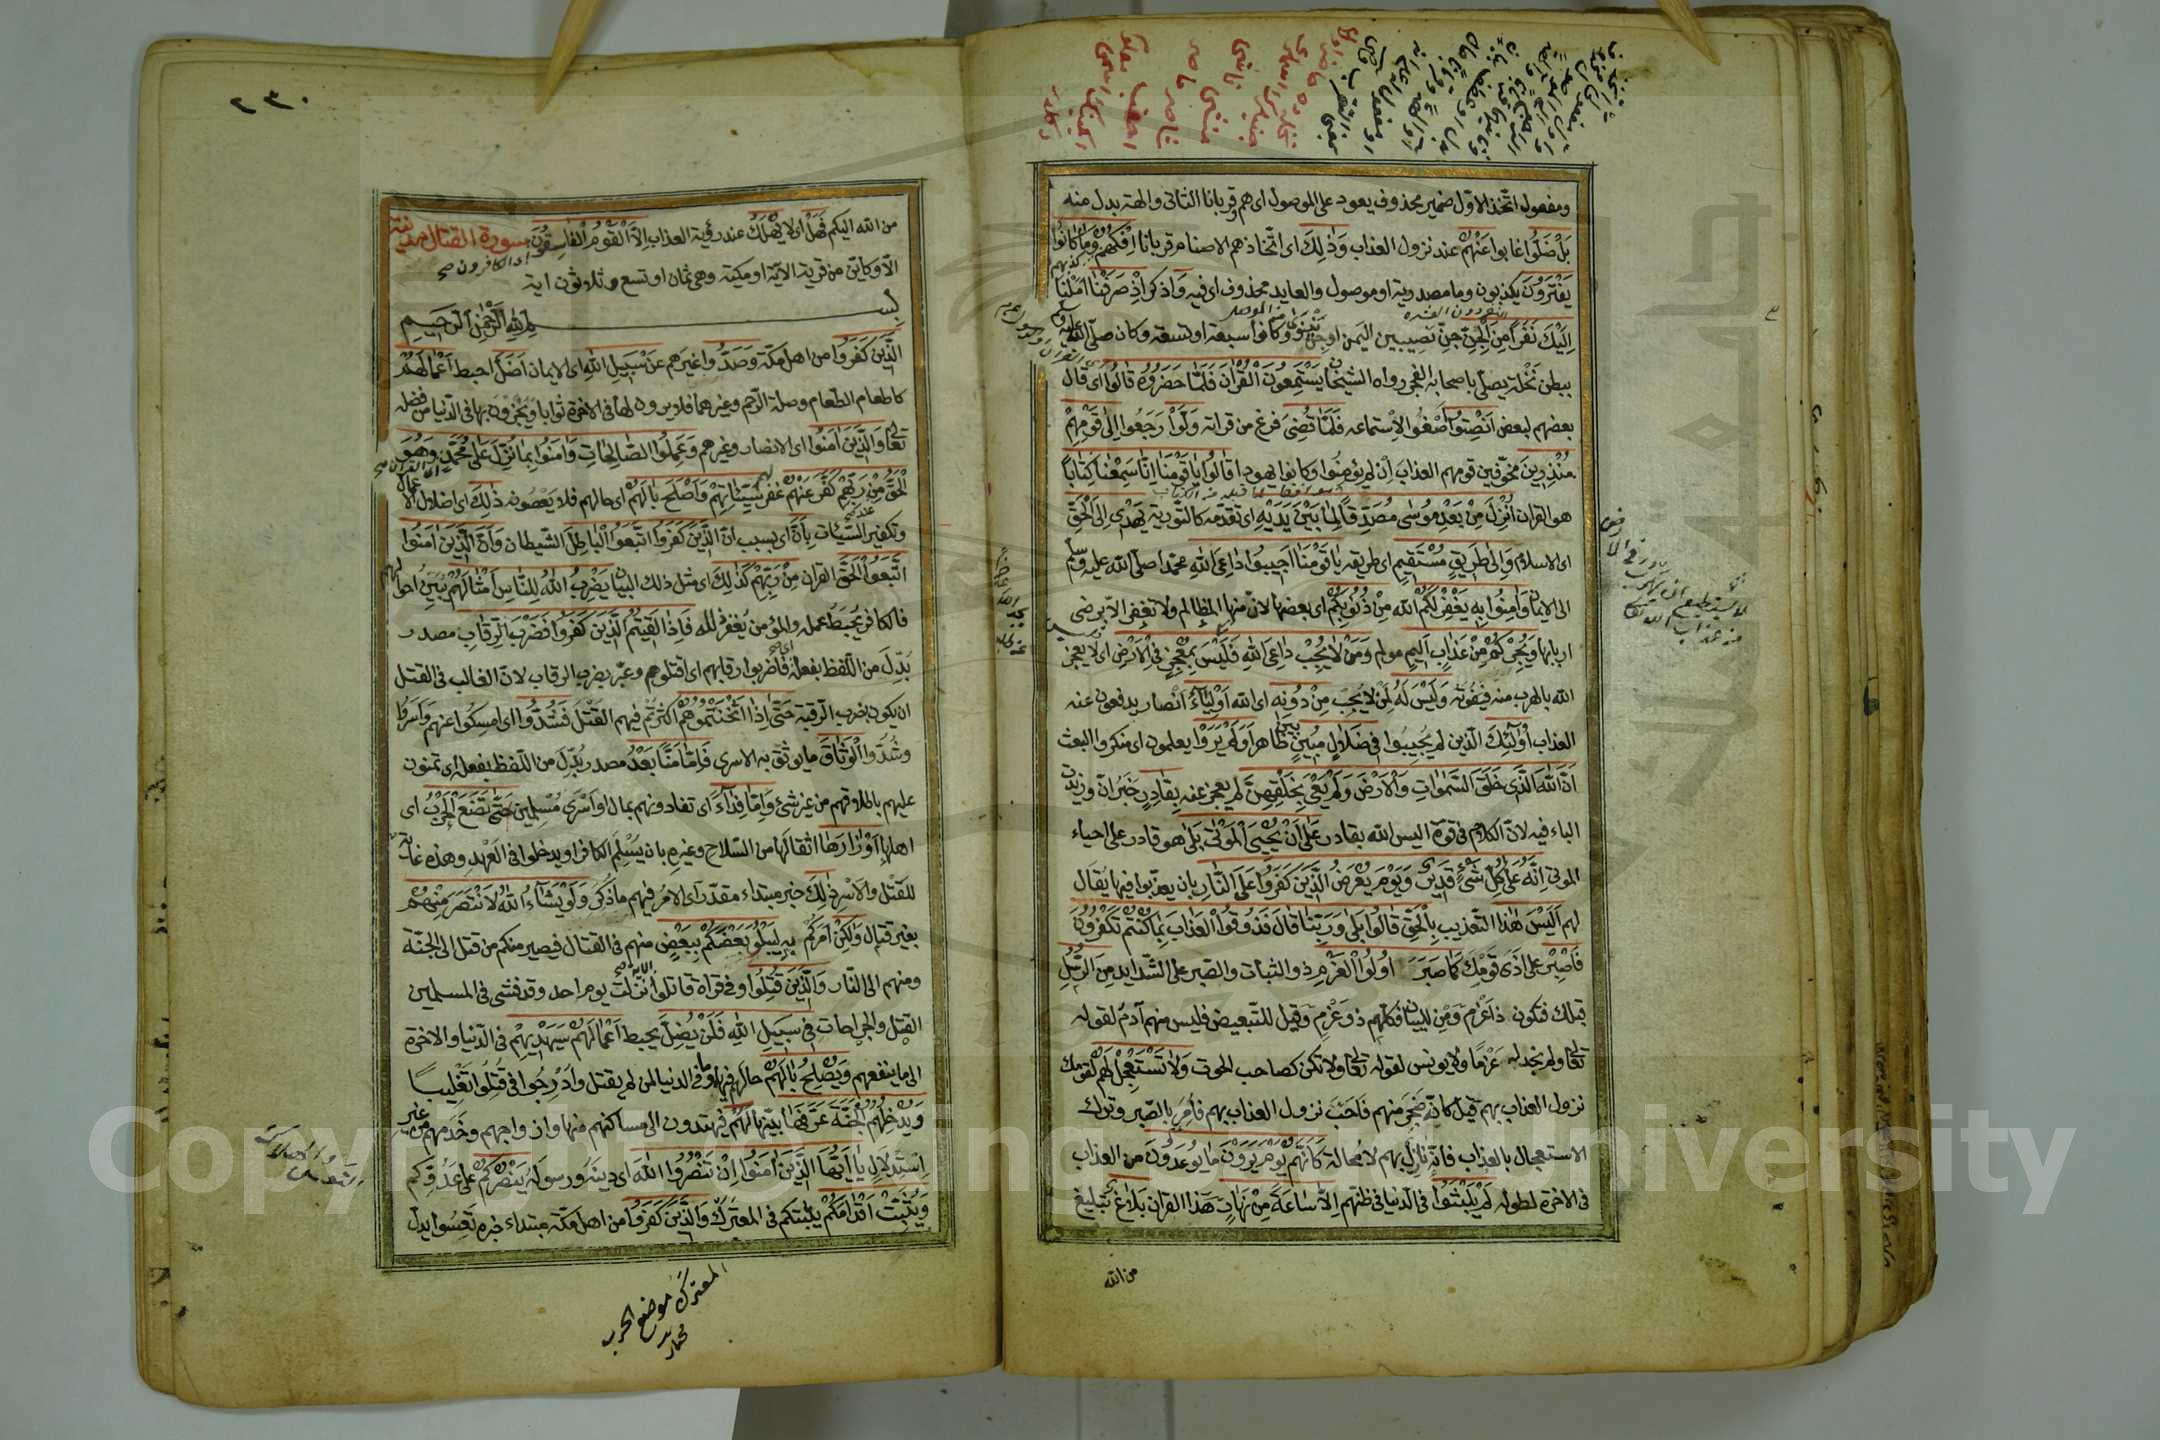 ومفعول اتخذ الاوّل ضمير محذوف يعود على الموصول اى هم وقربانا الثانى والهة بدل منه
بَلْ ضَلُّوا غابوا عَنْهُمْ عند نزول العذاب وَذٰلِكَ اى اتّخاذهم الاصنام قربانا اِفْكُهُمْ كذبهم وَمَا كَانُوا
يَفْتَرُونَ يكذبون وما مصدرية او موصول والعايد محذوف اى فيه وَاذكر اِذْ صَرَفْنَا اَمَلْنَا
اِلَيْكَ نَفَرًا مِنَ الْجِنِّ جنّ نصيبين اليمن او جنّ نينوى وكانوا سبعة او تسعة وكان صلّى الله عليه وسلم
ببطن نَخْلة يصلّى باصحابه الفجر رواه الشيخان يَسْتَمِعُونَ الْقُرْاٰنَ فَلَمَّا حَضَرُوهُ قَالُوا اى قال
بعضهم لبعض اَنْصِتُوا اَصْغُوا لاستماعه فَلَمَّا قُضِىَ فرغ من قراته وَلَّوْا رَجَعوا اِلٰى قَوْمِهِمْ
مُنْذِرِينَ مخوّفين قومهم العذاب ان لم يؤمنوا وكانوا يهودا قَالُوا يَا قَوْمَنَا اِنَّا سَمِعْنَا كِتَابًا
هو القران اُنْزِلَ مِنْ بَعْدِ مُوسٰى مُصَدِّقًا لِمَا بَيْنَ يَدَيْهِ اى تقدّمه كالتورية يَهْدِى اِلَى الْحَقِّ
اى الاسلام وَاِلٰى طَرِيقٍ مُسْتَقِيمٍ اى طريقه يَا قَوْمَنَا اَجِيبُوا دَاعِىَ اللّٰهِ محمّدا صلّى الله عليه وسلم
الى الايمان وَاٰمِنُوا بِهِ يَغْفِرْ لَكُمْ الله مِنْ ذُنُوبِكُمْ اى بعضها لانّ منها المظالم ولا تغفر الّا برضى
اربابها وَيُجِرْكُمْ مِنْ عَذَابٍ اَلِيمٍ مولم وَمَنْ لَا يُجِبْ دَاعِىَ اللّٰهِ فَلَيْسَ بِمُعْجِزٍ فِى الْاَرْضِ اى لا يعجز
الله بالهرب منه فيفوته وَلَيْسَ لَهُ لمن لا يجب مِنْ دُونِهِ اى الله اَوْلِيَاءُ انصار يدفعون عنه
العذاب اُولٰئِكَ الّذين لم يجيبوا فِى ضَلَالٍ مُبِينٍ بيّن ظاهر اَوَلَمْ يَرَوْا يعلموا اى منكروا البعث
اَنَّ اللّٰهَ الَّذِى خَلَقَ السَّمٰوَاتِ وَالْاَرْضَ وَلَمْ يَعْىَ بِخَلْقِهِنَّ لم يعجز عنه بِقَادِرٍ خبر انّ وزيدت
الباء فيه لانّ الكلام فى قوة اليس الله بقادر عَلٰى اَنْ يُحْيِىَ الْمَوْتٰى بَلٰى هو قادر على احياء
الموتى اِنَّهُ عَلٰى كُلِّ شَىْءٍ قَدِيرٌ وَيَوْمَ يُعْرَضُ الَّذِينَ كَفَرُوا عَلَى النَّارِ بان يعذّبوا فيها يقال
لهم اَلَيْسَ هٰذَا التعذيب بِالْحَقِّ قَالُوا بَلٰى وَرَبِّنَا قَالَ فَذُوقُوا الْعَذَابَ بِمَا كُنْتُمْ تَكْفُرُونَ
فَاصْبِرْ على اذى قومك كَمَا صَبَرَ اُولُوا الْعَزْمِ ذو الثبات والصّبر على الشّدايد مِنَ الرُّسُلِ
قبلك فتكون ذا عزم ومِن للبيان فكلّهم ذو عزم وقيل للتبعيض فليس منهم آدم لقوله
تعالى ولم نجد له عزمًا ولا يونس لقوله تعالى ولا تكن كصاحب الحوت وَلَا تَسْتَعْجِلْ لَهُمْ لقومك
نزول العذاب بهم قيل كانّه ضجر منهم فاحبّ نزول العذاب بهم فامر بالصّبر وترك
الاستعجال بالعذاب فانه نازل بهم لا محالة كَاَنَّهُمْ يَوْمَ يَرَوْنَ مَا يُوعَدُونَ من العذاب
فى الاخرة لطوله لَمْ يَلْبَثُوا فى الدّنيا فى ظنّهم اِلَّا سَاعَةً مِنْ نَهَارٍ هٰذا القران بَلَاغٌ تبليغ
من الله
٢٣٠
من الله اليكم فَهَلْ اى لا يُهْلَكُ عند رؤية العذاب اِلَّا الْقَوْمُ الْفَاسِقُونَ اى الكافرون صح سورة القتال مدنية
الّا وكاين من قرية الاية او مكية وهى ثمان او تسع وثلاثون اية
بسم اللّٰهِ الرَّحْمٰنِ الرَّحِيمِ
اَلَّذِينَ كَفَرُوا من اهل مكّة وَصَدُّوا غيرهم عَنْ سَبِيلِ اللّٰهِ اى الايمان اَضَلَّ احبط اَعْمَالَهُمْ
كاطعام الطعام وصلة الرّحم وغيرهما فلا يرون لها فى الاخرة ثوابا ويُجْزَوْنَ بها فى الدّنيا من فضله
تعالى وَالَّذِينَ اٰمَنُوا اى الانصار وغيرهم وَعَمِلُوا الصَّالِحَاتِ وَاٰمَنُوا بِمَا نُزِّلَ عَلٰى مُحَمَّدٍ اى القران صح وَهُوَ
الْحَقُّ مِنْ رَبِّهِمْ كَفَّرَ عَنْهُمْ غفر لهم سَيِّئَاتِهِمْ وَاَصْلَحَ بَالَهُمْ اى حالهم فلا يعصونه ذٰلِكَ اى اضلال الاعمال
وتكفير السّيئات بِاَنَّ اى بسبب انّ الَّذِينَ كَفَرُوا اتَّبَعُوا الْبَاطِلَ الشيطان وَاَنَّ الَّذِينَ اٰمَنُوا
اتَّبَعُوا الْحَقَّ القران مِنْ رَبِّهِمْ كَذٰلِكَ اى مثل ذلك البيان يَضْرِبُ اللّٰهُ لِلنَّاسِ اَمْثَالَهُمْ يبيّن احوالهم
فالكافر يحبط عمله والمؤمن يُغفر لله فَاِذَا لَقِيتُمُ الَّذِينَ كَفَرُوا فَضَرْبَ الرِّقَابِ مصدر
بُدِّلَ من اللّفظ بفعله اى فاضربوا رقابهم اى اقتلوهم وعبّر بضرب الرقاب لانّ الغالب فى القتل
ان يكون بضرب الرّقبة حَتّٰى اِذَا اَثْخَنْتُمُوهُمْ اكثرتم فيهم القتل فَشُدُّوا اى امسكوا عنهم وأسروا
وشُدّوا الْوَثَاقَ ما يوثق به الاسرى فَاِمَّا مَنًّا بَعْدُ مصدر بُدِّل من اللّفظ بفعله اى تمنون
عليهم باطلاقهم من غير شئ وَاِمَّا فِدَاءً اى تفادونهم بمال او اسرى مُسْلِمين حَتّٰى تَضَعَ الْحَرْبُ اى
اهلها اَوْزَارَهَا اثقالها من السّلاح وغيره بان يُسْلِم الكافر او يدخلوا فى العهد وهذه غاية
للقتل والاسر ذٰلِكَ خبر مبتداء مقدّر اى الامر فيهم ما ذكر وَلَوْ يَشَاءُ اللّٰهُ لَانْتَصَرَ مِنْهُمْ
بغير قتال وَلٰكِنْ امركم به لِيَبْلُوَ بَعْضَكُمْ بِبَعْضٍ منهم فى القتال فيصير منكم من قتل الى الجنّة
ومنهم الى النّار وَالَّذِينَ قُتِلُوا وفى قراة قاتلوا الاية نزلت يوم احد وقد فشى فى المسلمين
القتل والجراحات فِى سَبِيلِ اللّٰهِ فَلَنْ يُضِلَّ يحبط اَعْمَالَهُمْ سَيَهْدِيهِمْ فى الدّنيا والاخرة
الى ما ينفعهم وَيُصْلِحُ بَالَهُمْ حالهم فيهما وما فى الدنيا لمن لم يقتل وادرجوا فى قُتِلوا تغليبا
وَيُدْخِلُهُمُ الْجَنَّةَ عَرَّفَهَا بيّنها لَهُمْ فيهتدون الى مساكنهم منها وازواجهم وخدمهم من غير
استدلال يَا اَيُّهَا الَّذِينَ اٰمَنُوا اِنْ تَنْصُرُوا اللّٰهَ اى دينه ورسوله يَنْصُرْكُمْ على عدوّكم
وَيُثَبِّتْ اَقْدَامَكُمْ يثبتكم فى المعترك وَالَّذِينَ كَفَرُوا من اهل مكّة مبتداء خبره تعسوا يدلّ
المعترك موضع الحرب
Copyright © King Saud University